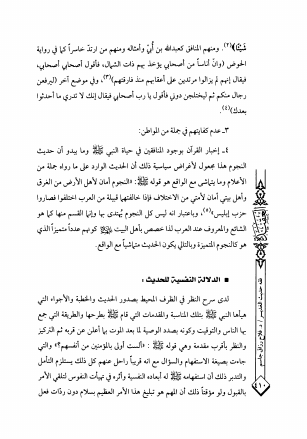 شَيْئًا﴾(٢). ومنهم المنافق كعبدالله بن أبيّ وأمثاله ومنهم من ارتدّ خاسراً كما في رواية
الحوض (وانّ أناساً من أصحابي يؤخذ بهم ذات الشمال، فأقول أصحابي أصحابي،
فيقال إنهم لم يزالوا مرتدين على أعقابهم منذ فارقتهم)(٣)، وفي موضع آخر (ليرفعن
رجال منكم ثم ليختلجن دوني فأقول يا رب أصحابي فيقال إنك لا تدري ما أحدثوا
بعدك)(٤).
٣ـ عدم كفايتهم في جملة من المواطن:
٤ـ إخبار القرآن بوجود المنافقين في حياة النبي ﷺ وما يبدو أن حديث
النجوم هذا مجعول لأغراض سياسية ذلك أن الحديث الوارد على ما رواه جملة من
الأعلام وما يتماشى مع الواقع هو قوله ﷺ: «النجوم أمان لأهل الأرض من الغرق
وأهل بيتي أمان لأمتي من الاختلاف فإذا خالفتها قبيلة من العرب اختلفوا فصاروا
حزب إبليس»(٥)، وباعتبار انه ليس كل النجوم يُهتدى بها وإنما القسم منها كما هو
الشائع والمعروف عند العرب لذا خصص بأهل البيت ﷺ كونهم عدداً متميزاً الذي
هو كالنجوم المتميزة وبالتالي يكون الحديث متماشياً مع الواقع.
■ الدلالة النفسية للحديث:
لدى سرح النظر في الظرف المحيط بصدور الحديث والخطبة والأجواء التي
هيأها النبي ﷺ بتلك المناسبة والمقدمات التي قام ﷺ بطرحها والطريقة التي جمع
بها الناس والتوقيت وكونه بصدد الوصية لما بعد الموت بها أعلن عن قربه ثم التركيز
والنظر بأقرب مقدمة وهي قوله ﷺ: «ألست أولى بالمؤمنين من أنفسهم؟» والتي
جاءت بصيغة الاستفهام والسؤال مع انه قريباً راحل عنهم كل ذلك يستلزم التأمل
والتدبر ذلك أن استفهامه ﷺ له أبعاده النفسية وأثره في تهيأت النفوس لتلقي الأمر
بالقبول ولو مؤقتاً ذلك أن المهم هو تبليغ هذا الأمر العظيم بسلام دون ردات فعل
فقه حديث الغدير / د. فلاح رزاق جاسم
٤١٠